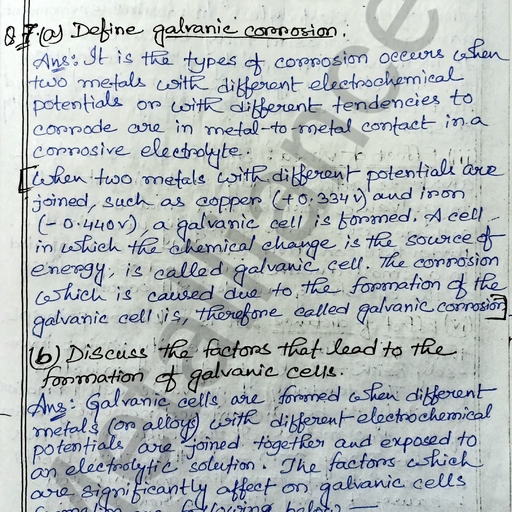 Q.7.(a) Define galvanic corrosion.
Ans: It is the types of corrosion occurs when
two metals with different electrochemical
potentials or with different tendencies to
corrode are in metal-to-metal contact in a
corrosive electrolyte.
[When two metals with different potentials are
joined, such as copper (+0.334v) and iron
(-0.440v), a galvanic cell is formed. A cell
in which the chemical change is the source of
energy, is called galvanic cell. The corrosion
which is caused due to the formation of the
galvanic cell is, therefore called galvanic corrosion]
(b) Discuss the factors that lead to the
formation of galvanic cells.
Ans: Galvanic cells are formed when different
metals (or alloys) with different electrochemical
potentials are joined together and exposed to
an electrolytic solution. The factors which
are significantly affect on galvanic cells
are following below —